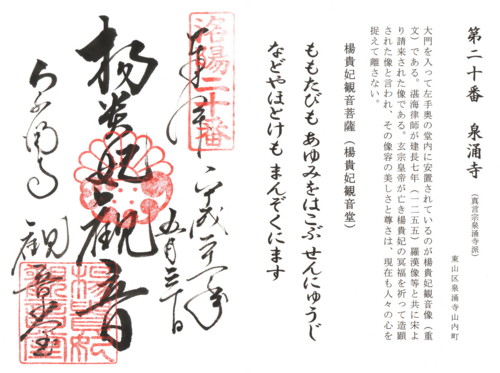 第二十番 泉涌寺
(真言宗泉涌寺派)
東山区泉涌寺山内町
大門を入って左手奥の堂内に安置されているのが楊貴妃観音像(重
文)である。湛海律師が建長七年(一二五五)羅漢像等と共に宋よ
り請来された像である。玄宗皇帝が亡き楊貴妃の冥福を祈って造顕
された像と言われ、その像容の美しさと尊さは、現在も人々の心を
捉えて離さない。
楊貴妃観音菩薩(楊貴妃観音堂)
ももたびも あゆみをはこぶ せんにゅうじ
などやほとけも まんぞくにます
洛陽二十番
奉拝
平成二十一年
五月三十日
楊貴妃観音
泉涌寺 観音堂